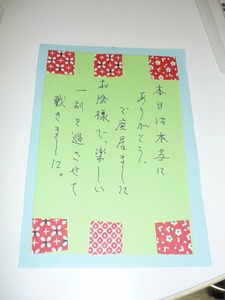 本日は本当に
ありがとう、
ございました
お陰様で、楽しい
一刻を過させて
戴きました。